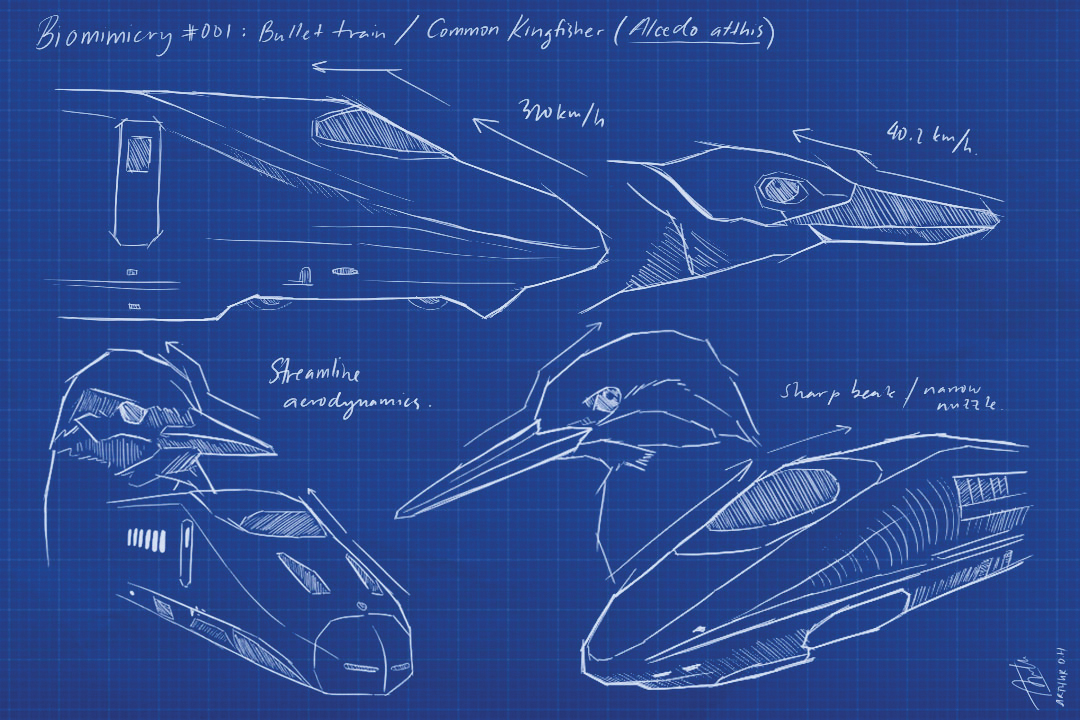 Biomimicry #001: Bullet train / Common Kingfisher (Alcedo atthis)
320km/h
40.2 km/h.
Streamline
aerodynamics.
Sharp beak / narrow
nuzzle.
ARTHUR O.H